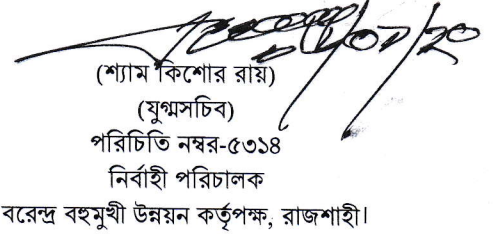 (শ্যাম কিশোর রায়)
(যুগ্মসচিব)
পরিচিতি নম্বর-৫৩১৪
নির্বাহী পরিচালক
বরেন্দ্র বহুমুখী উন্নয়ন কর্তৃপক্ষ, রাজশাহী।